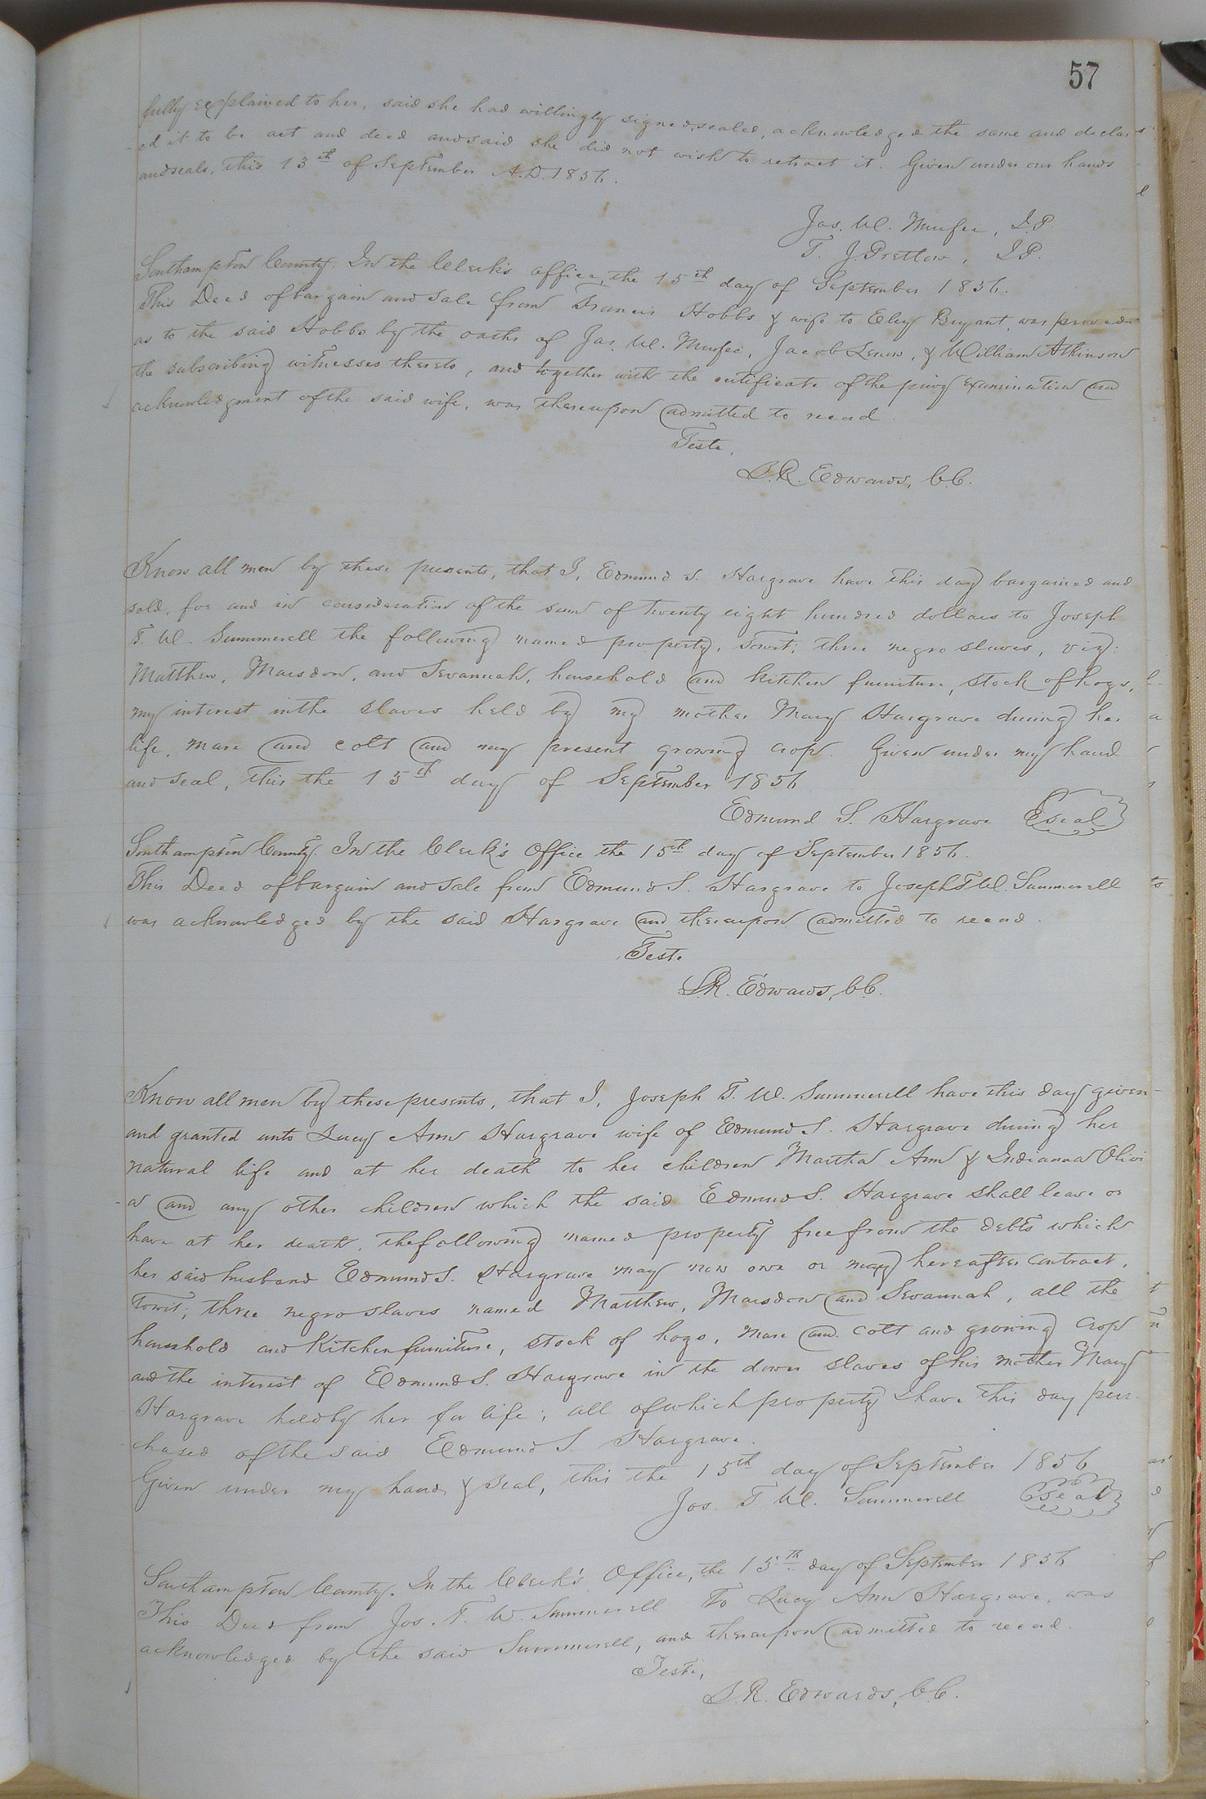 57
fully explained to her, said she had willingly signed, sealed, acknowledged the same and declar
ed it to be act and deed and said she did not wish to retract it. Given under our hands
and seals, this 13th of September A.D. 1856.
Jas. W. Murfee, J.P.
T. J. Pretlow, J.P.
Southampton County. In the Clerk's office, the 15th day of September 1856.
This Deed of bargain and sale from Francis Hobbs & wife to Eley Bryant, was proved
as to the said Hobbs by the oaths of Jas. W. Murfee, Jacob &  William Atkinson
the subscribing witnesses thereto, and together with the certificate of the privy examination and
acknowledgment of the said wife, was thereupon admitted to record
Teste,
L.R. Edwards, C.C.
Know all men by these presents, that I, Edmund S. Hargrave have this day bargained and
sold, for and in consideration of the sum of twenty eight hundred dollars to Joseph
T. W. Summerell the following named property, towit; three negro slaves, viz:
Matthew, and Sevannah, household and kitchen furniture, stock of hogs,
my interest in the slaves held by my mother Mary Hargrave during her
life, mare and colt and my present growing crop. Given under my hand
and seal, this the 15th day of September 1856
Edmund S. Hargrave Seal
Southampton County. In the Clerk's Office the 15th day of September 1856.
This Deed of bargain and sale from Edmund S. Hargrave to Joseph T. W. Summerell
was acknowledged by the said Hargrave and thereupon admitted to record.
Teste
L.R. Edwards, C.C.
Know all men by these presents, that I, Joseph T. W. Summerell have this day given
and granted unto Lucy Ann Hargrave wife of Edmund S. Hargrave during her
natural life and at her death to her children Martha Ann & Indianna Olivi
a and any other children which the said Edmund S. Hargrave shall leave or
have at her death, the following named property free from the debts which
her said husband Edmund S. Hargrave may now owe or may hereafter contract,
towit; three negro slaves named Matthew, and Sevannah, all the
household and Kitchen furniture, stock of hogs, mare and colt and growing crop
and the interest of Edmund S. Hargrave in the dower slaves of his mother Mary
Hargrave held by her for life; all of which property I have this day pur
chased of the said Edmund S. Hargrave.
Given under my hand & seal, this the 15th day of September 1856
Jos. T. W. Summerell Seal
Southampton County. In the Clerk's Office, the 15th day of September 1856
This Deed from Jos. T. W. Summerell To Lucy Ann Hargrave, was
acknowledged by the said Summerell, and thereupon admitted to record.
Teste,
L.R. Edwards, C.C.